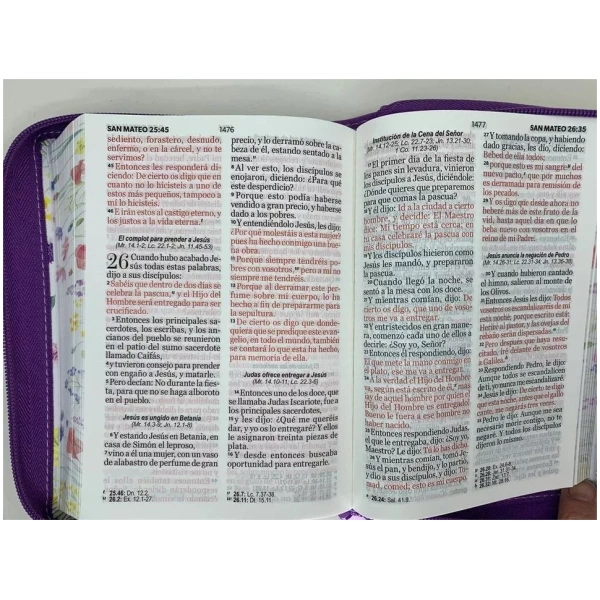 SAN MATEO 25:45
1476
sediento, forastero, desnudo,
enfermo, o en la cárcel, y no te
servimos?
45 Entonces les responderá di-
ciendo: De cierto os digo que en
cuanto no lo hicisteis a uno de
estos más pequeños, tampoco a
mí lo hicisteis.
46 E irán estos al castigo eterno, y
los justos a la vida eterna.
El complot para prender a Jesús
(Mr. 14.1-2; Lc. 22.1-2; Jn. 11.45-53)
26 Cuando hubo acabado Je-
sús todas estas palabras,
dijo a sus discípulos:
2 Sabéis que dentro de dos días se
celebra la pascua, y el Hijo del
Hombre será entregado para ser
crucificado.
3 Entonces los principales sa-
cerdotes, los escribas, y los an-
cianos del pueblo se reunieron
en el patio del sumo sacerdote
llamado Caifás,
4 y tuvieron consejo para prender
con engaño a Jesús, y matarle.
5 Pero decían: No durante la fies-
ta, para que no se haga alboroto
en el pueblo.
Jesús es ungido en Betania
(Mr. 14.3-9; Jn. 12.1-8)
6 Y estando Jesús en Betania, en
casa de Simón el leproso,
7 vino a él una mujer, con un vaso
de alabastro de perfume de gran
25.46: Dn. 12.2.
26.2: Ex. 12.1-27.
precio, y lo derramó sobre la ca-
beza de él, estando sentado a la
mesa.
8 Al ver esto, los discípulos se
enojaron, diciendo: ¿Para qué
este desperdicio?
9 Porque esto podía haberse
vendido a gran precio, y haberse
dado a los pobres.
10 Y entendiéndolo Jesús, les dijo:
¿Por qué molestáis a esta mujer?
pues ha hecho conmigo una bue-
na obra.
11 Porque siempre tendréis po-
bres con vosotros, pero a mí no
siempre me tendréis.
12 Porque al derramar este per-
fume sobre mi cuerpo, lo ha
hecho a fin de prepararme para
la sepultura.
13 De cierto os digo que donde-
quiera que se predique este evan-
gelio, en todo el mundo, también
se contará lo que esta ha hecho,
para memoria de ella.
Judas ofrece entregar a Jesús
(Mr. 14.10-11; Lc. 22.3-6)
14 Entonces uno de los doce, que
se llamaba Judas Iscariote, fue a
los principales sacerdotes,
15 y les dijo: ¿Qué me queréis
dar, y yo os lo entregaré? Y ellos
le asignaron treinta piezas de
plata.
16 Y desde entonces buscaba
oportunidad para entregarle.
26.7: Lc. 7.37-38.
26.11: Dt. 15.11.
1477
SAN MATEO 26:35
Institución de la Cena del Señor
(Mr. 14.12-25; Lc. 22.7-23; Jn. 13.21-30;
1 Co. 11.23-26)
17 El primer día de la fiesta de
los panes sin levadura, vinieron
los discípulos a Jesús, diciéndole:
¿Dónde quieres que preparemos
para que comas la pascua?
18 Y él dijo: Id a la ciudad a cierto
hombre, y decidle: El Maestro
dice: Mi tiempo está cerca; en
tu casa celebraré la pascua con
mis discípulos.
19 Y los discípulos hicieron como
Jesús les mandó, y prepararon
la pascua.
20 Cuando llegó la noche, se
sentó a la mesa con los doce.
21 Y mientras comían, dijo: De
cierto os digo, que uno de voso-
tros me va a entregar.
22 Y entristecidos en gran mane-
ra, comenzó cada uno de ellos a
decirle: ¿Soy yo, Señor?
23 Entonces él respondiendo, dijo:
El que mete la mano conmigo en
el plato, ese me va a entregar.
24 A la verdad el Hijo del Hombre
va, según está escrito de él, mas
¡ay de aquel hombre por quien el
Hijo del Hombre es entregado!
Bueno le fuera a ese hombre no
haber nacido.
25 Entonces respondiendo Judas,
el que le entregaba, dijo: ¿Soy yo,
Maestro? Le dijo: Tú lo has dicho.
26 Y mientras comían, tomó Je-
sús el pan, y bendijo, y lo partió,
y dio a sus discípulos, y dijo: To-
mad, comed; esto es mi cuerpo.
26.24: Sal. 41.9.
27 Y tomando la copa, y habiendo
dado gracias, les dio, diciendo:
Bebed de ella todos;
28 porque esto es mi sangre del
nuevo pacto, que por muchos
es derramada para remisión de
los pecados.
29 Y os digo que desde ahora no
beberé más de este fruto de la
vid, hasta aquel día en que lo
beba nuevo con vosotros en el
reino de mi Padre.
Jesús anuncia la negación de Pedro
(Mr. 14.26-31; Lc. 22.31-34; Jn. 13.36-38)
30 Y cuando hubieron cantado
el himno, salieron al monte de
los Olivos.
31 Entonces Jesús les dijo: Todos
vosotros os escandalizaréis de mí
esta noche; porque escrito está:
Heriré al pastor, y las ovejas del
rebaño serán dispersadas.
32 Pero después que haya resu-
citado, iré delante de vosotros
a Galilea.
33 Respondiendo Pedro, le dijo:
Aunque todos se escandalicen
de ti, yo nunca me escandalizaré.
34 Jesús le dijo: De cierto te digo
que esta noche, antes que el gallo
cante, me negarás tres veces.
35 Pedro le dijo: Aunque me sea
necesario morir contigo, no te
negaré. Y todos los discípulos
dijeron lo mismo.